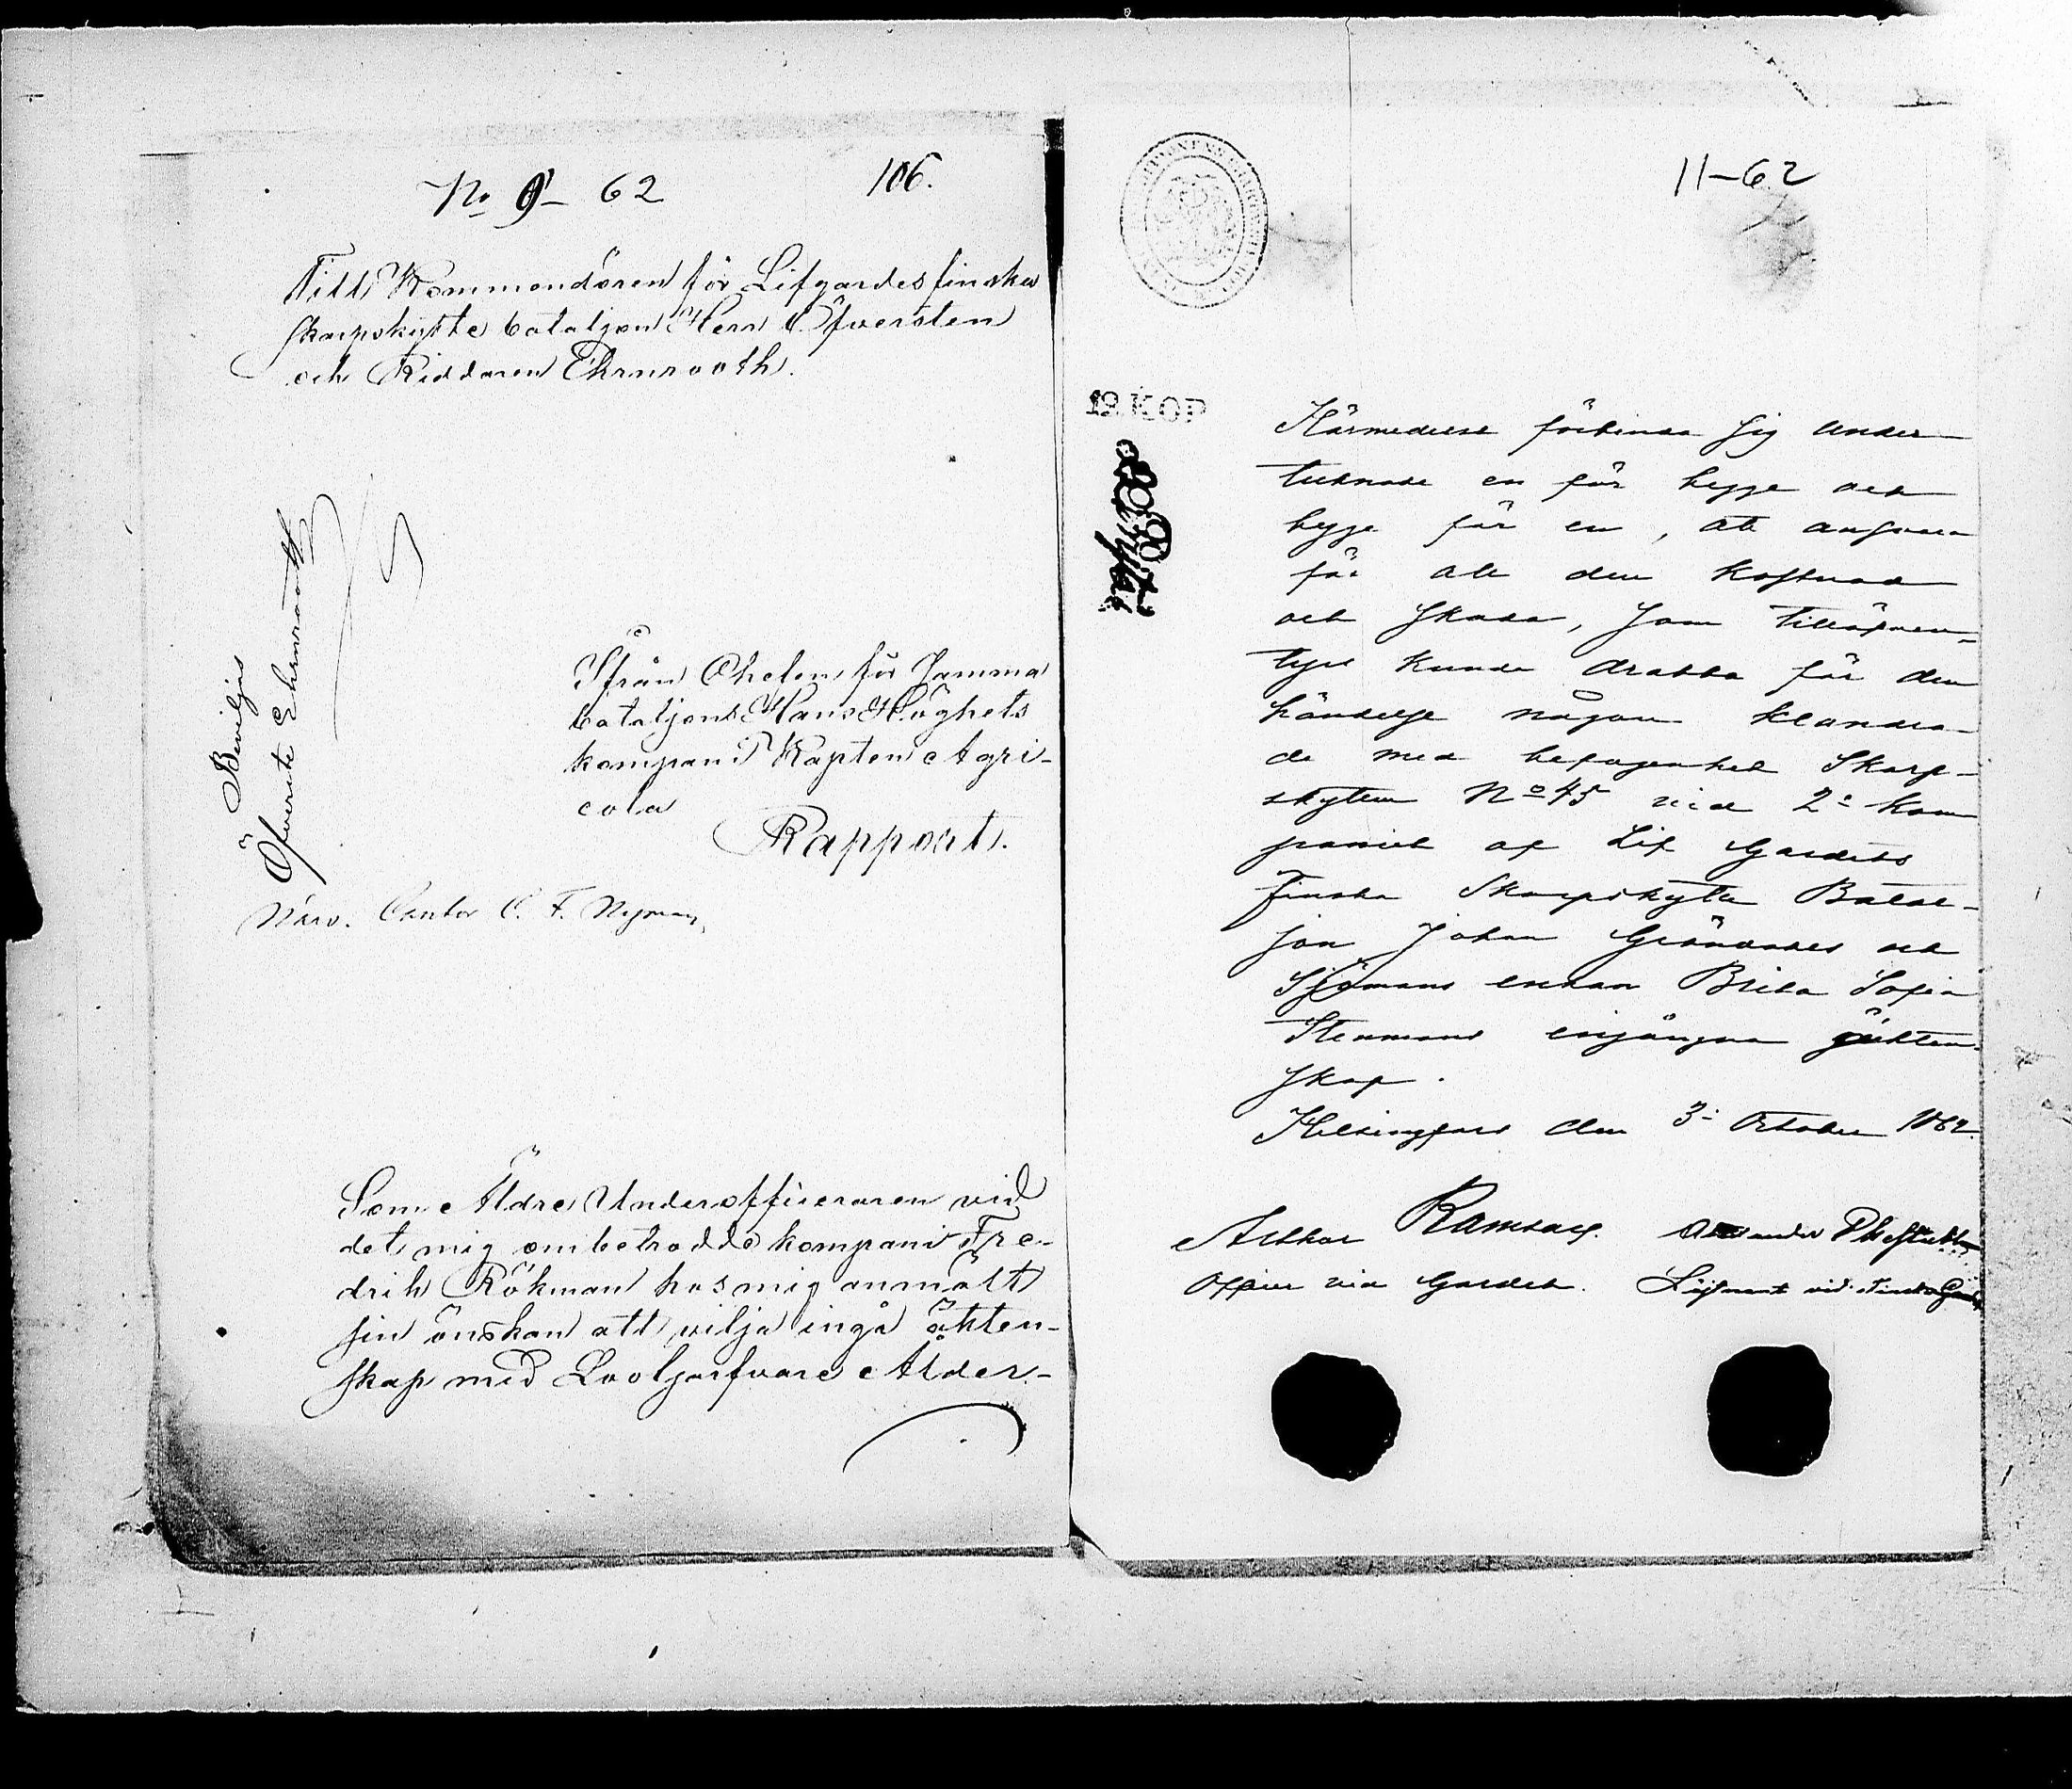 No 9 - 62
106.
Till Kommendören för Lifgardes finska
skarpskytte bataljon Herr Öfversten
och Riddaren Ehrnrooth.
Beviljas
Öfverste Ehrnrooth
Ifrån Chefen för samma
bataljons Hans Höghets
kompani Kapten Agri-
cola
Rapport.
Närv. Cantor C. F. Nyman
Som Äldre Underofficeraren vid
det mig ombetrodde kompani Fre-
drik Rökman hos mig anmält
sin önskan att vilja ingå äkten-
skap med Alder-
11-62
KOP
Härmedelst förbinda sig under-
tecknade en för begge och
begge för en, att ansvara
för all den kostnad
och skada, som tilläfven-
tyrs kunde drabba för den
händelse någon klandra-
de med befogenhet Skarp-
skytten No 45 vid 2a Kom
paniet af Lif Gardets
Finska Skarpskytte Batal-
jon Johan Grönundes och
Sjömans enkan Brita Sofia
Stenmans ingångna äkten-
skap.
Helsingfors den 3e October 1862.
Arthur Ramsay.
Officer vid Gardet.
Alexander
Löjtnant vid Finska Gardet